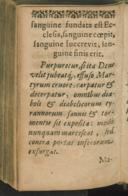 sanguine fundata est Ec-
clesia, sanguine cœpit,
sanguine succrevit, san-
guine finis erit.
Purpuretur, sicta Deu
velit jubeatq́, effuso Mar-
tyrum cruore: carpatur &
decerpatur, omnibus dia-
bolis & diabolicorum ty-
rannorum furiis & tor-
mentis sit exposita: modò
nunquam marcescat, sed
contra portas inferorum
exsurgat.